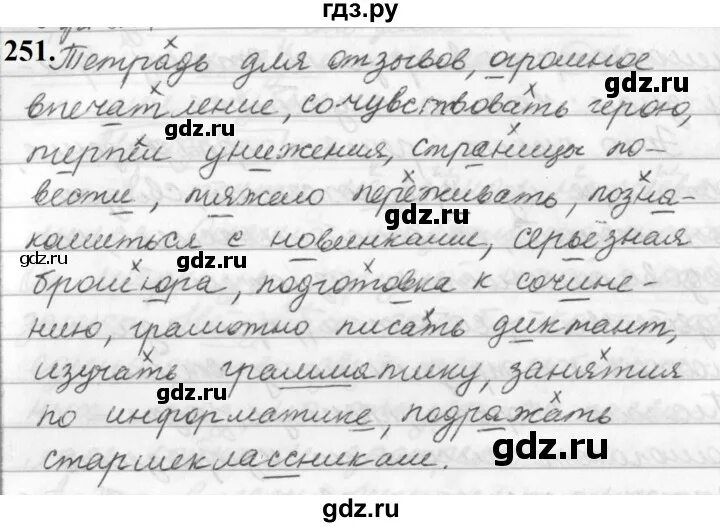 гдз.ру
251. Тетрадь для отзывов, огромное
впечатление, сочувствовать герою,
терпел унижения, страницы по-
вести, тяжело переживать, позна-
комиться с новинками, серьёзная
брошюра, подготовка к сочине-
нию, грамотно писать диктант,
изучать грамматику, занятия
по информатике, подражать
старшеклассникам.
gdz.ru
gdz.ru
gdz.ru
gdz.ru
gdz.ru
gdz.ru
gdz.ru
gdz.ru
gdz.ru
gdz.ru